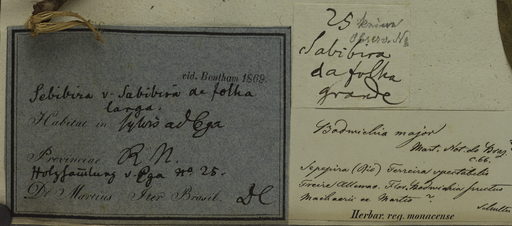 vid. Bentham 1869.
Sebibira v. Sabibira de folha
larga.
Habitat in sylvis ad Ega
Provinciae R. N.
Holzsammlung v. Ega No 25.
Dr Martius Iter Brasil. DC
25 keine
Observ. No
Sabibira
da folha
grande
Bodwichia major
Mart. Not. do Braz.
c. 66.
Sepepira (Rio) Ferreira spectabilis
Freire Allemao. Flor. Bodwichia fructus
Machaerii ex Martio?
Herbar. reg. monacense